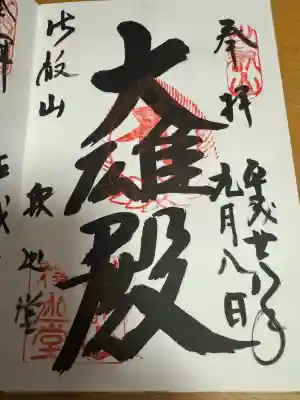 奉拝
平成廿八年
九月八日
大雄殿
比叡山
釈迦堂